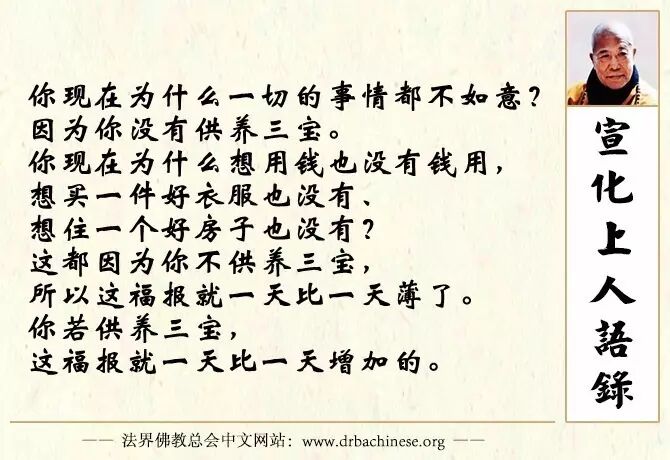 你现在为什么一切的事情都不如意？
因为你没有供养三宝。
你现在为什么想用钱也没有钱用，
想买一件好衣服也没有、
想住一个好房子也没有？
这都因为你不供养三宝，
所以这福报就一天比一天薄了。
你若供养三宝，
这福报就一天比一天增加的。
宣化上人語錄
—— 法界佛教总会中文网站：www.drbachinese.org ——